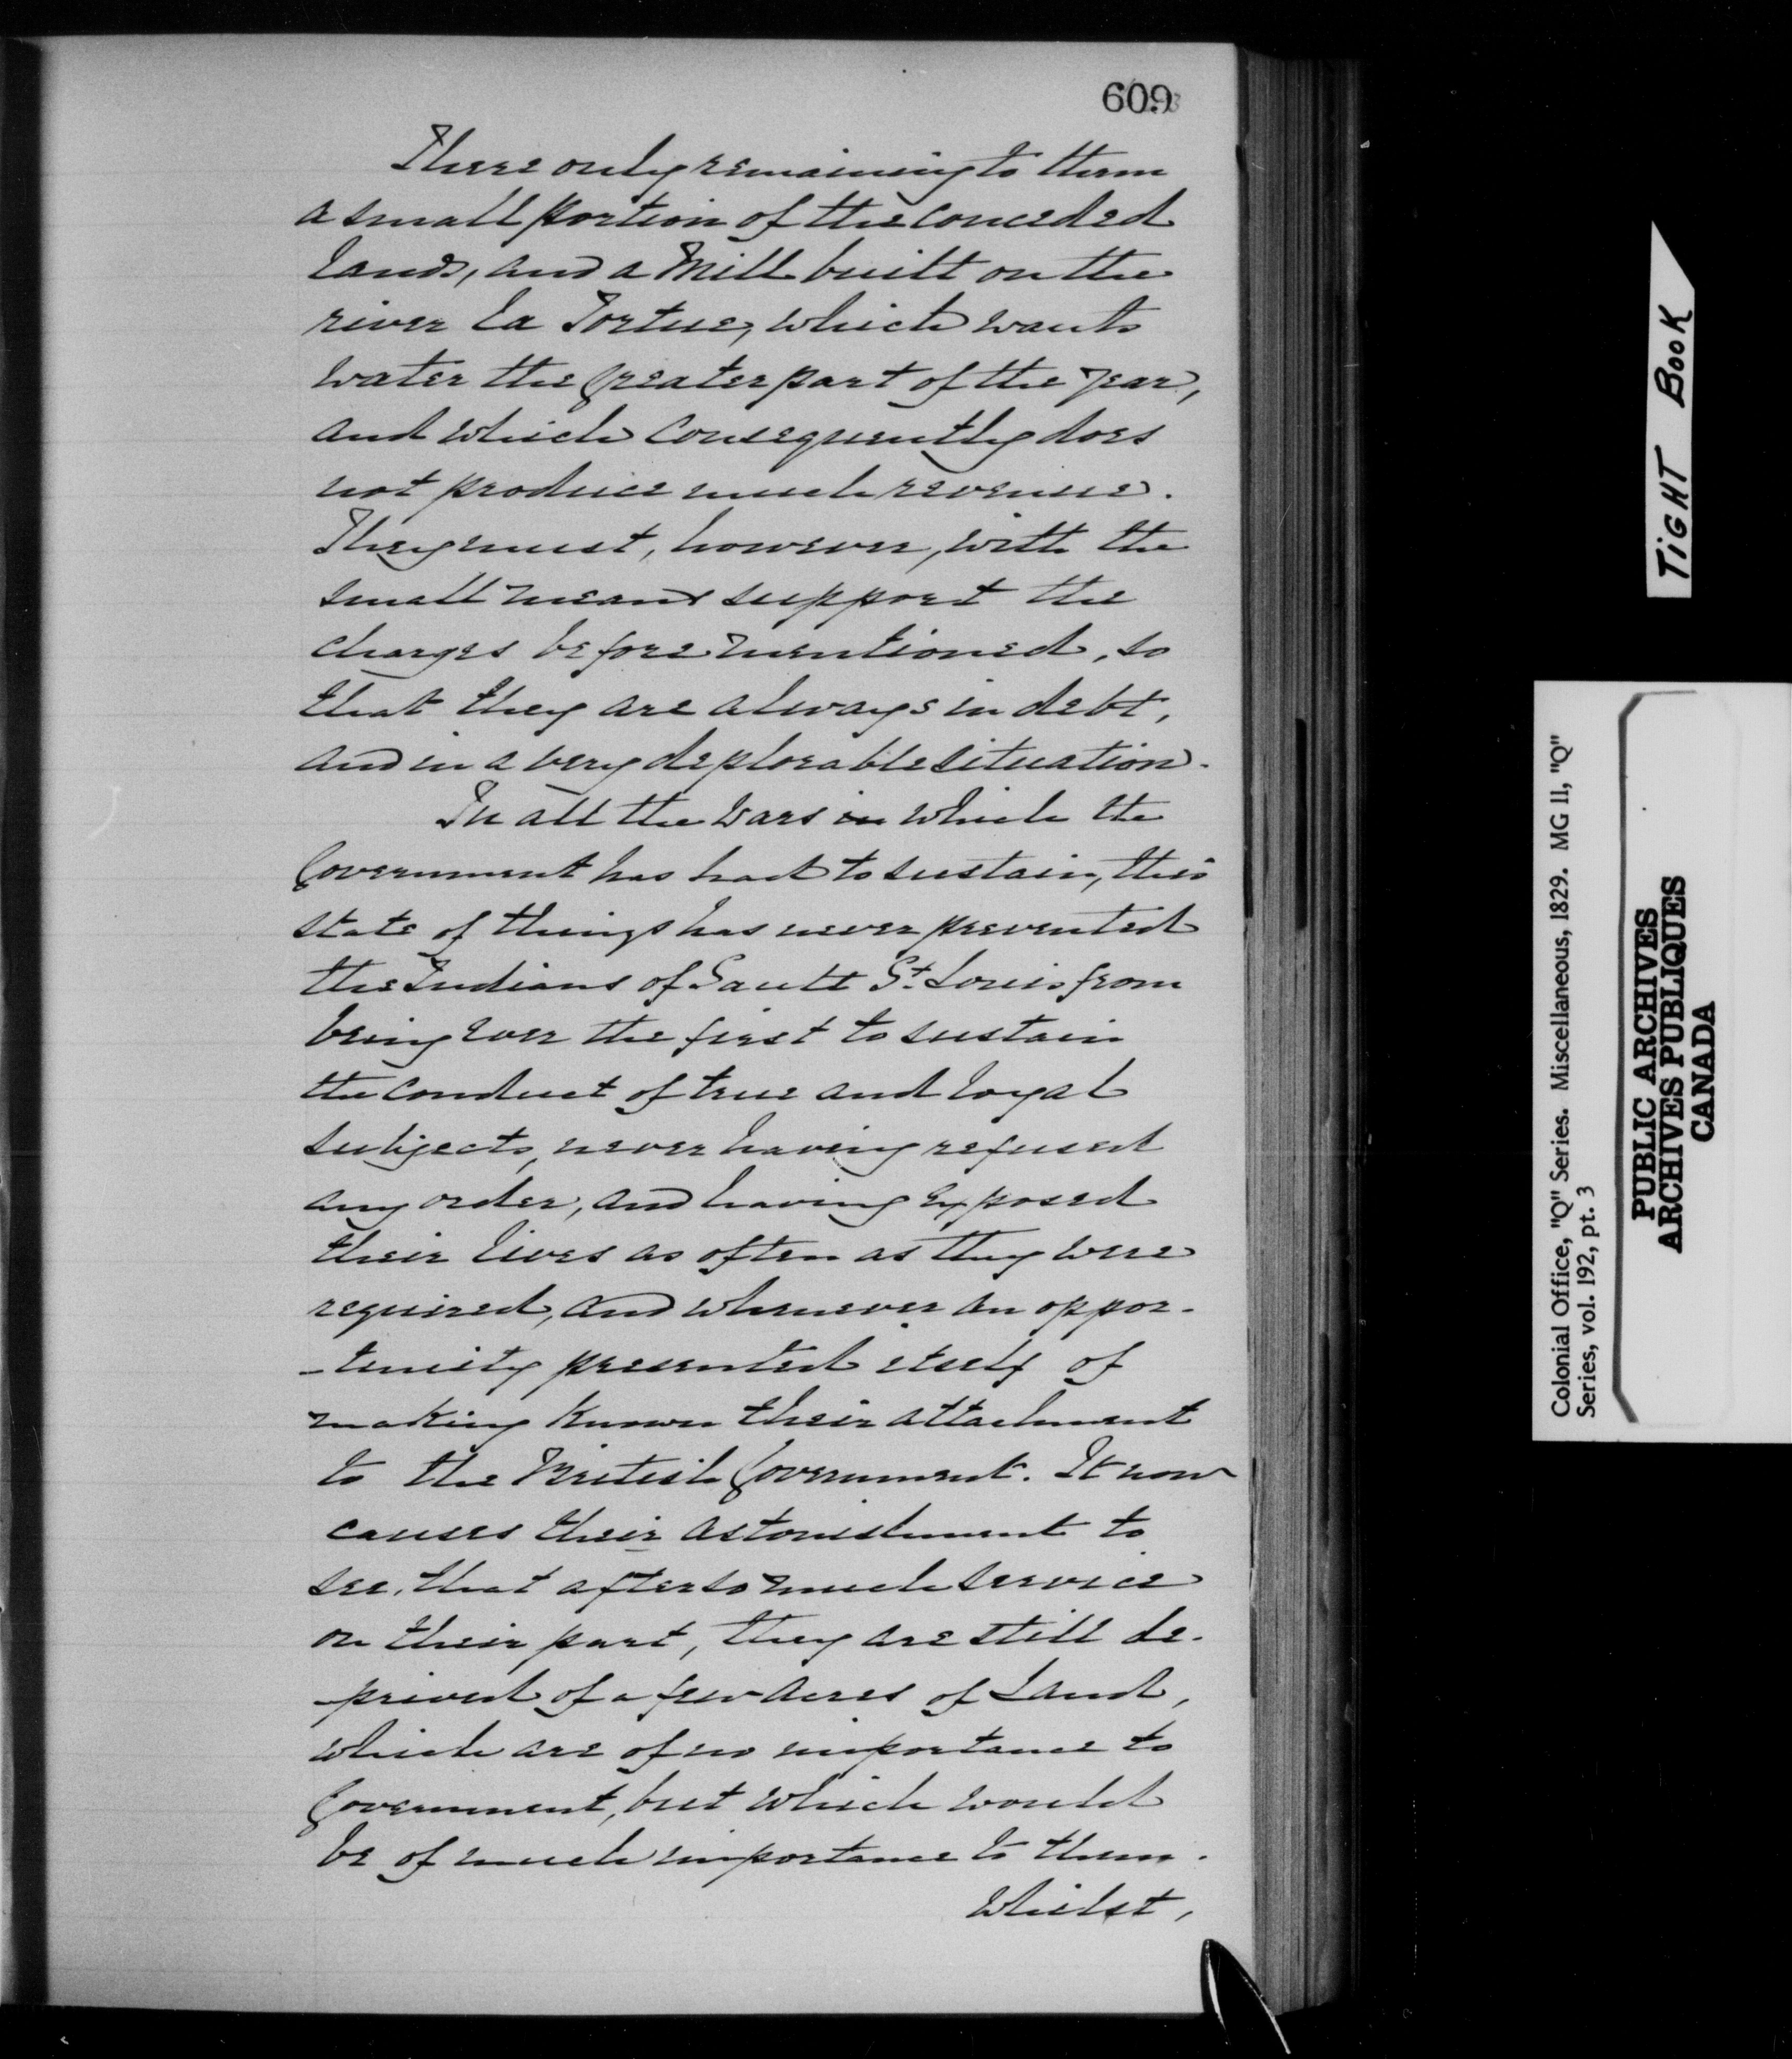 609
There only remaining to them
a small portion of the conceded
lands, and a Mill built on the
river La Tortue, which wants
water the greater part of the year,
and which consequently does
not produce much revenue.
They must, however, with the
small means support the
charges before mentioned, so
that they are always in debt,
and in a very deplorable situation.
In all the wars in which the
Government has had to sustain, this
state of things has never prevented
the Indians of Sault St. Louis from
being ever the first to sustain
the conduct of true and loyal
subjects, never having refused
any order, and having exposed
their lives as often as they were
required, and whenever an oppor-
-tunity presented itself of
making known their attachment
to the British Government. It now
causes their astonishment to
see, that after so much service
on their part, they are still de-
-prived of a few acres of Land,
which are of no importance to
Government, but which would
be of much importance to them.
Whilst,
TIGHT BOOK
Colonial Office, "Q" Series. Miscellaneous, 1829. MG 11, "Q"
Series, vol. 192, pt. 3
PUBLIC ARCHIVES
ARCHIVES PUBLIQUES
CANADA